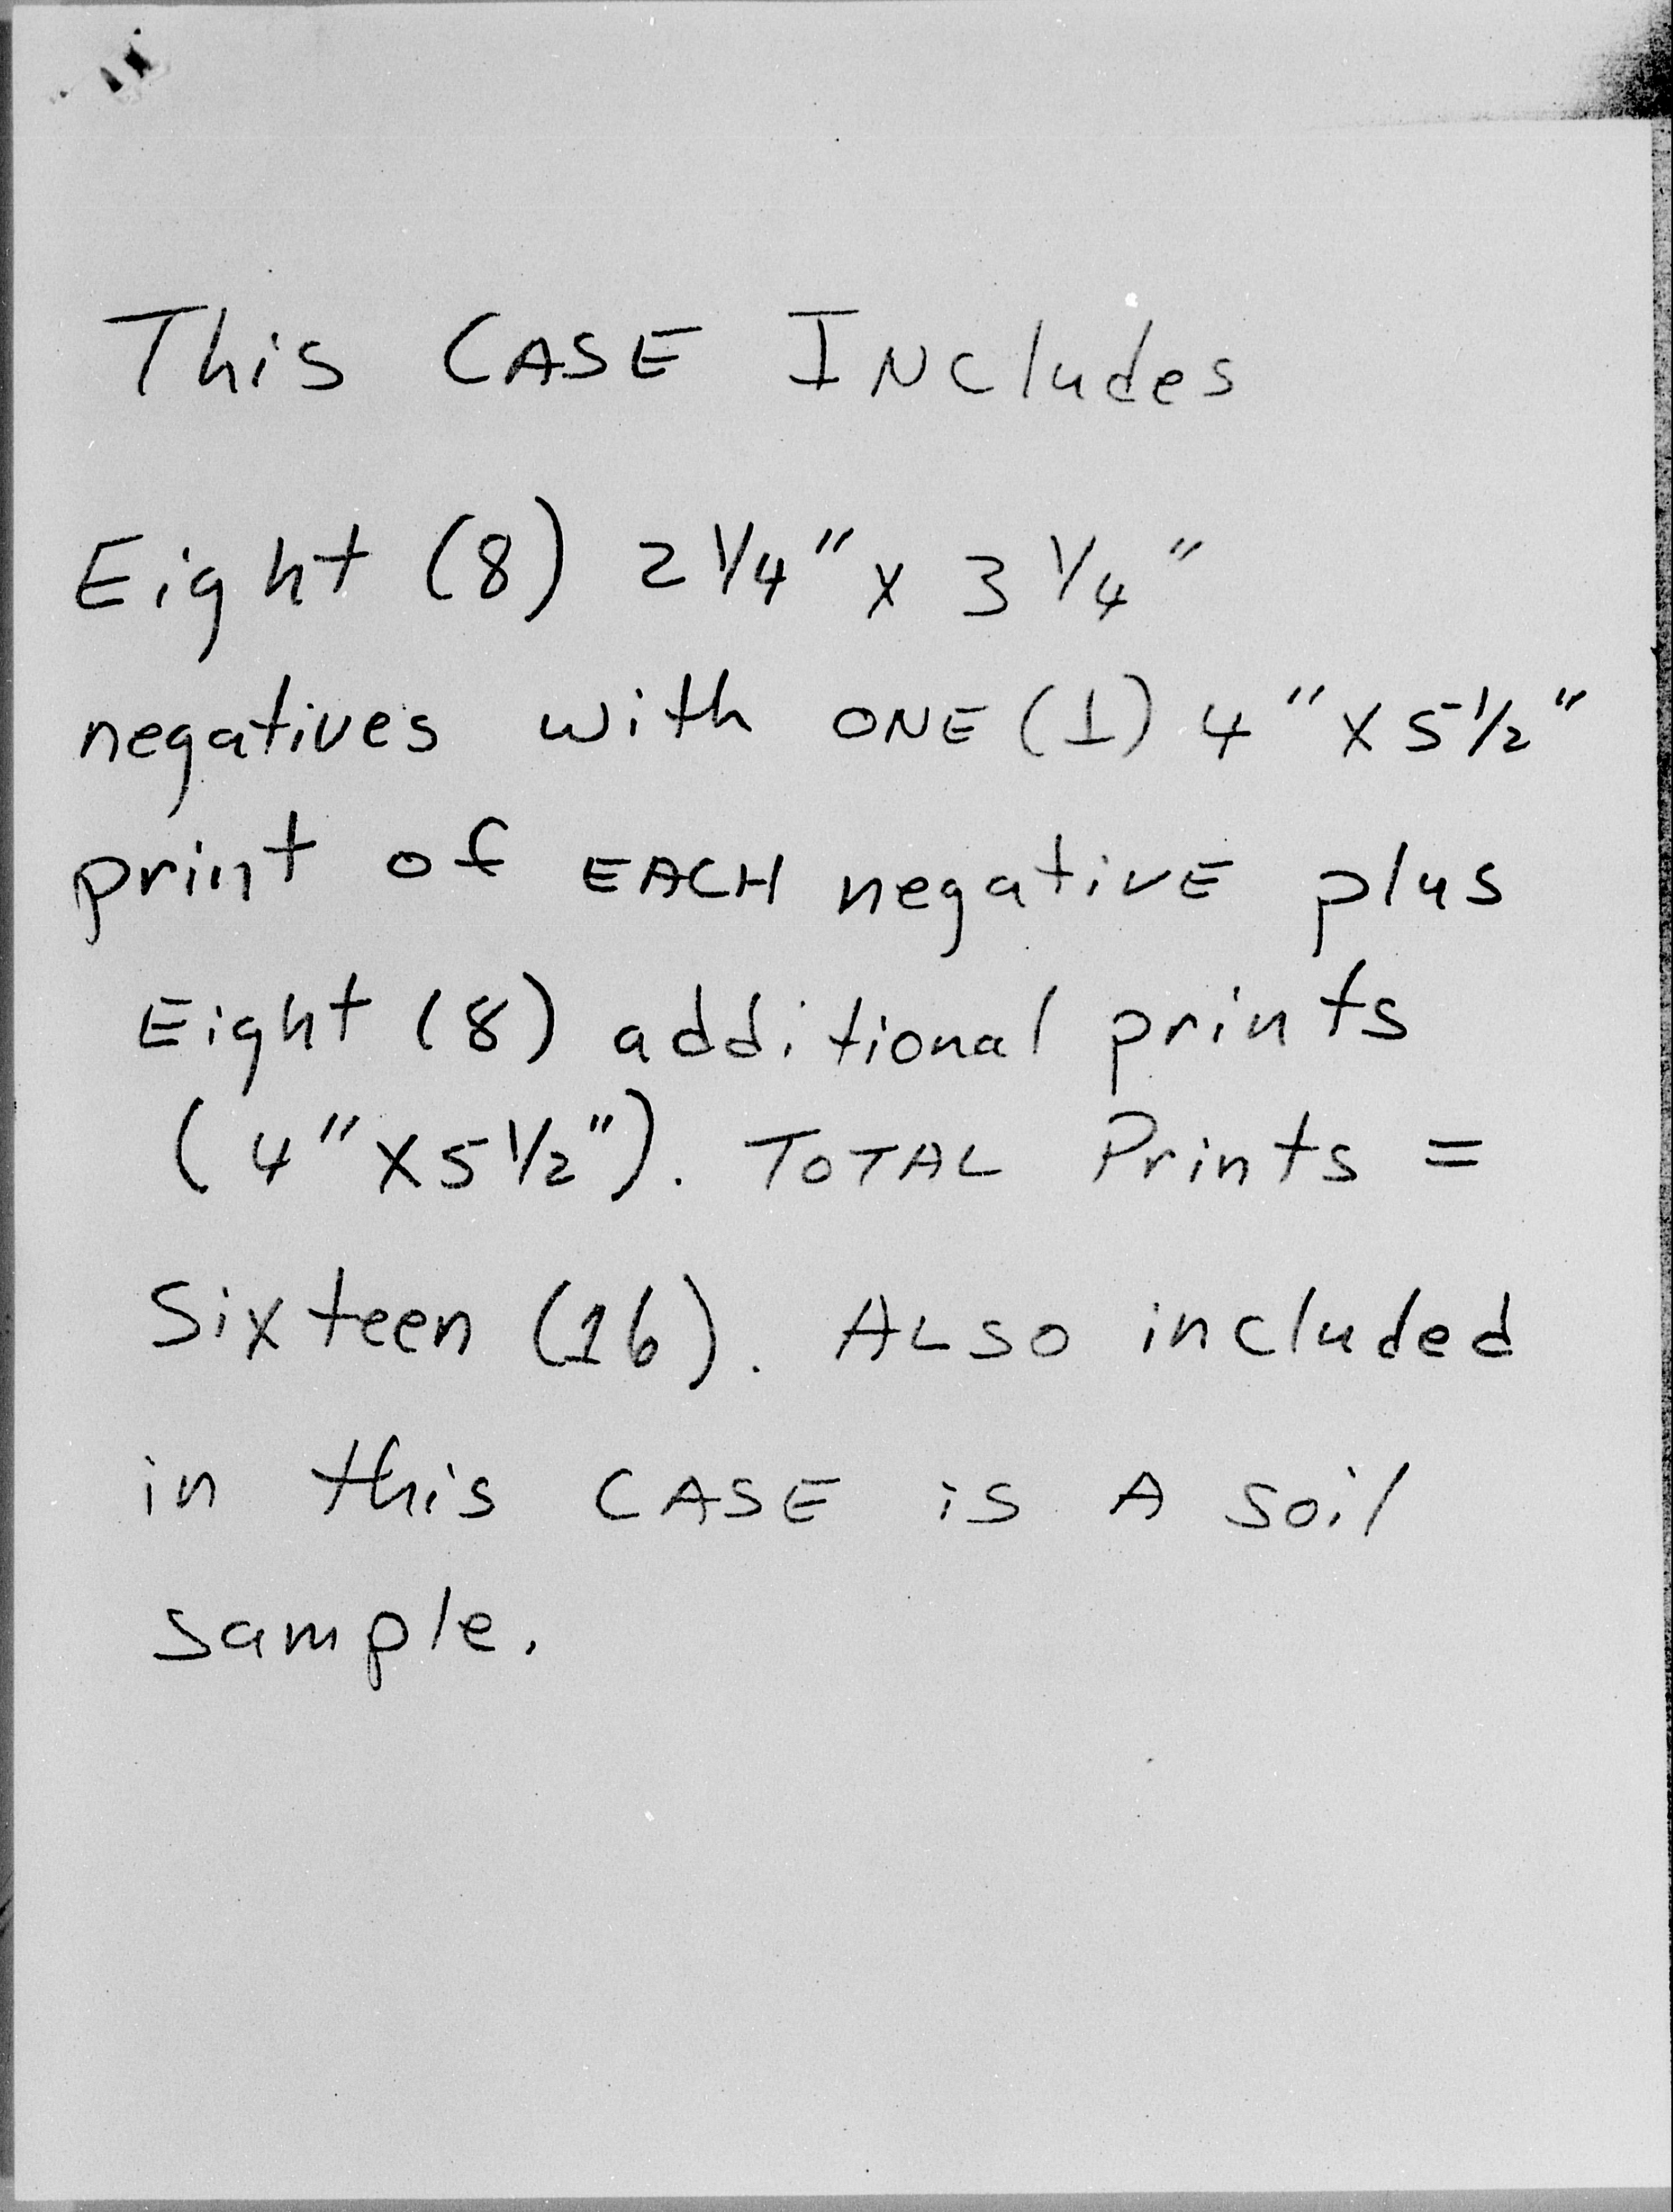 This CASE INCludes
Eight (8) 2 1/4" x 3 1/4"
negatives with ONE (1) 4" x 5 1/2"
print of EACH negativE plus
Eight (8) additional prints
(4" x 5 1/2"). TOTAL Prints =
Sixteen (16). ALSO included
in this CASE is A soil
sample.